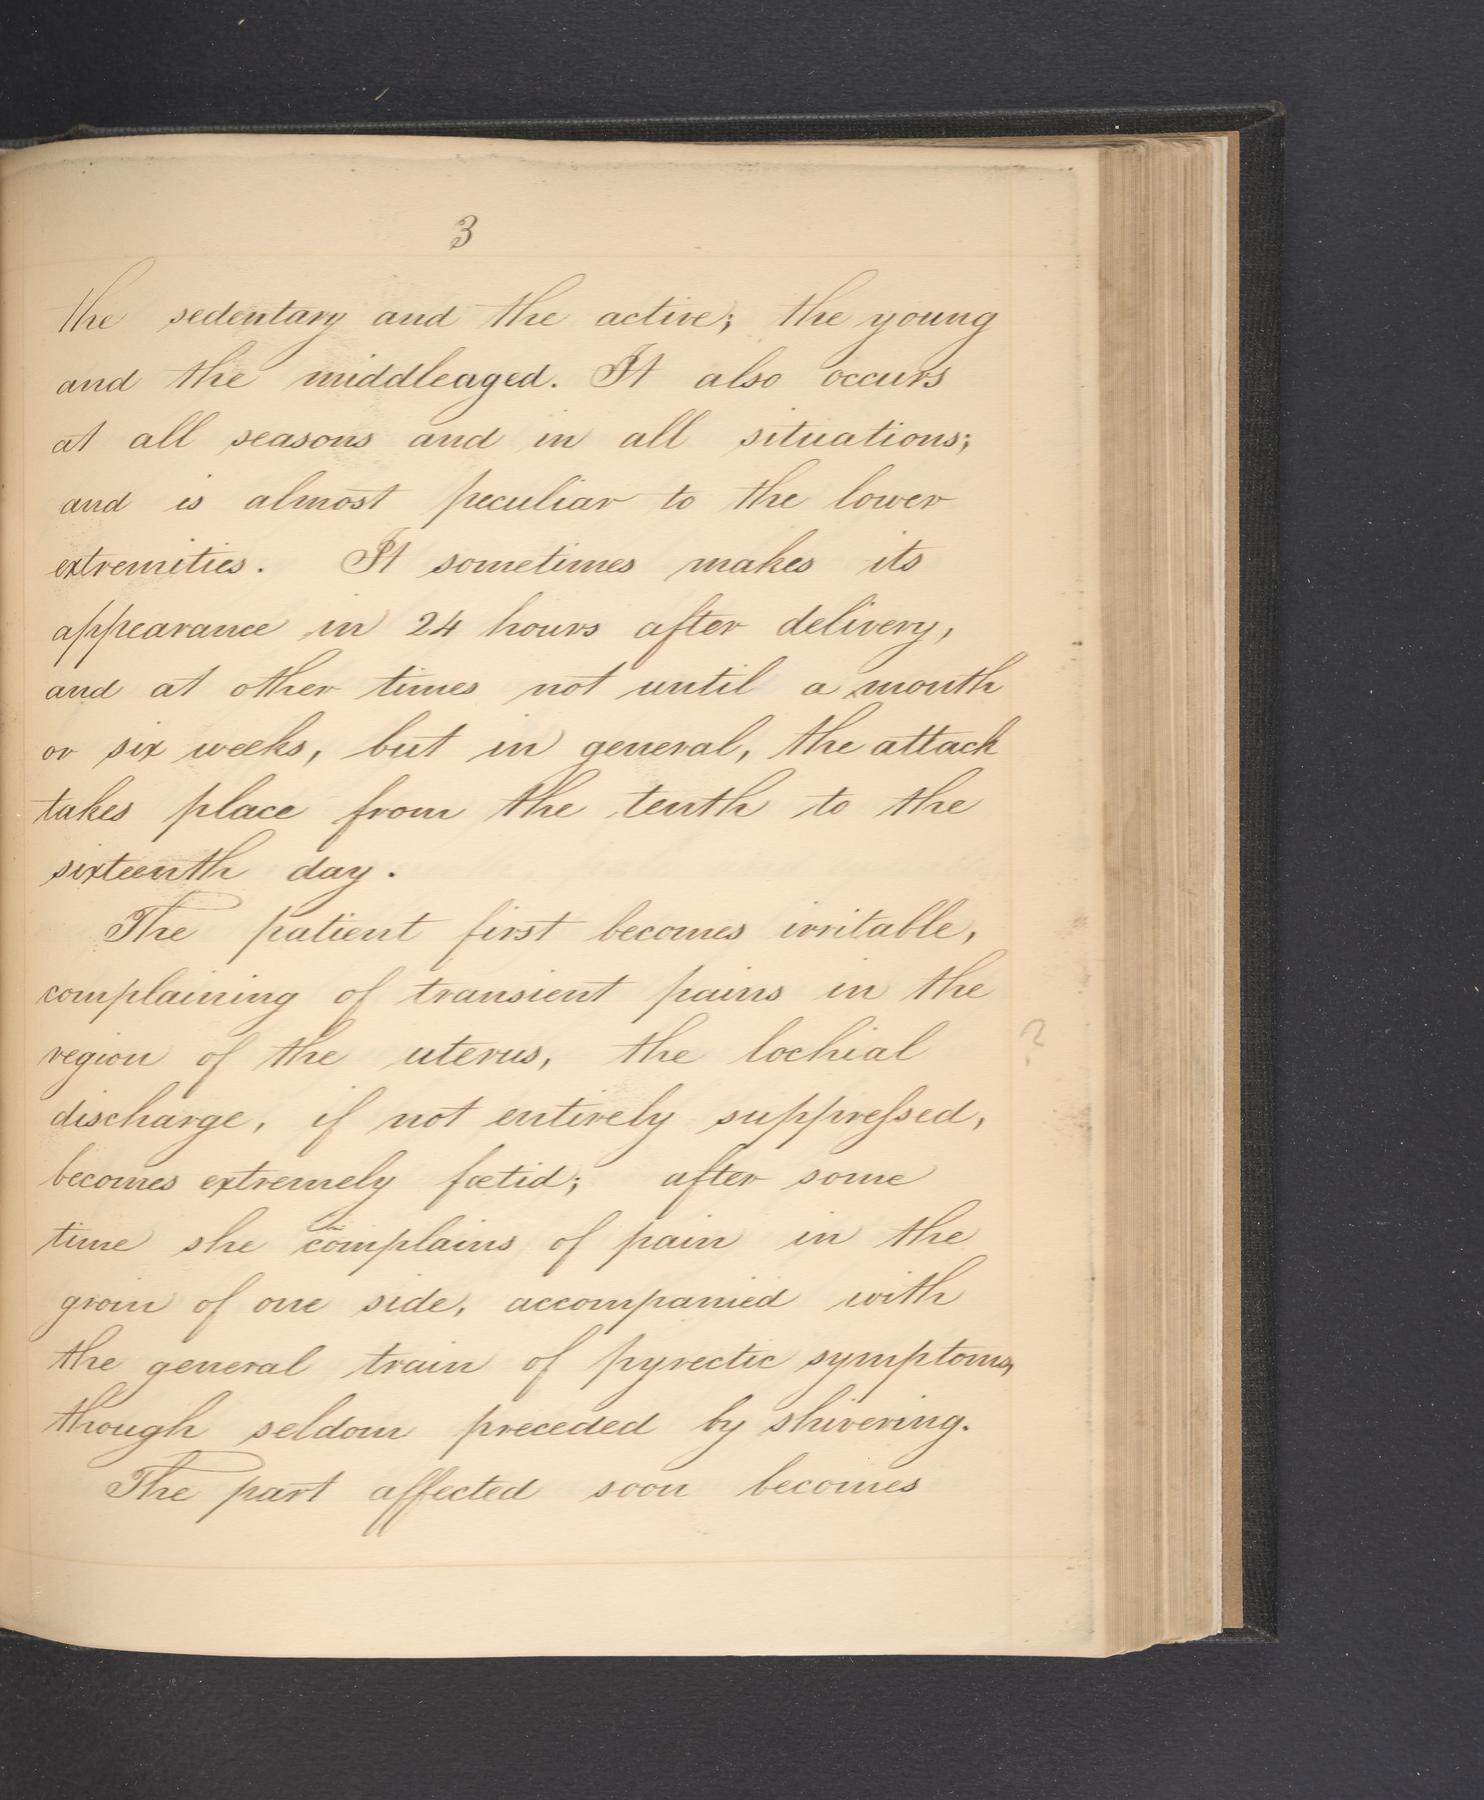 3
the sedentary and the active; the young
and the middleaged. It also occurs
at all seasons and in all situations;
and is almost peculiar to the lower
extremities. It sometimes makes its
appearance in 24 hours after delivery,
and at other times not until a month
or six weeks, but in general, the attack
takes place from the tenth to the
sixteenth day.
The patient first becomes irritable,
complaining of transient pains in the
region of the uterus, the lochial
?
discharge, if not entirely suppreſsed,
becomes extremely fœtid; after some
time she complains of pain in the
groin of one side, accompanied with
the general train of pyrectic symptoms,
though seldom preceded by shivering.
The part affected soon becomes